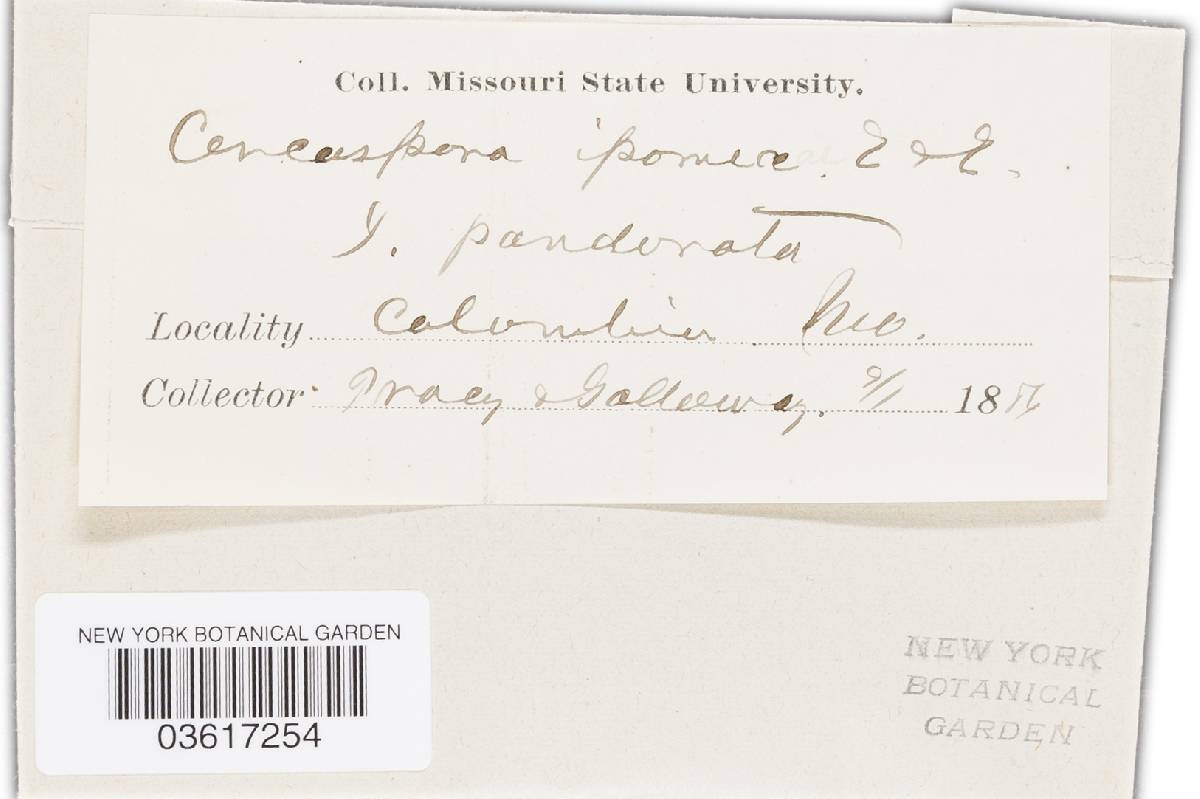 Coll. Missouri State University.
Cercospora ipomeae. E & E.
I. pandurata
Locality Columbia Mo.
Collector Tracy & Galloway. 9/1 18
NEW YORK BOTANICAL GARDEN
03617254
NEW YORK
BOTANICAL
GARDEN